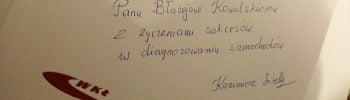 Panu Błażejowi Kowalskiemu
Z życzeniami sukcesów
w diagnozowaniu samochodów
Kazimierz
WKŁ